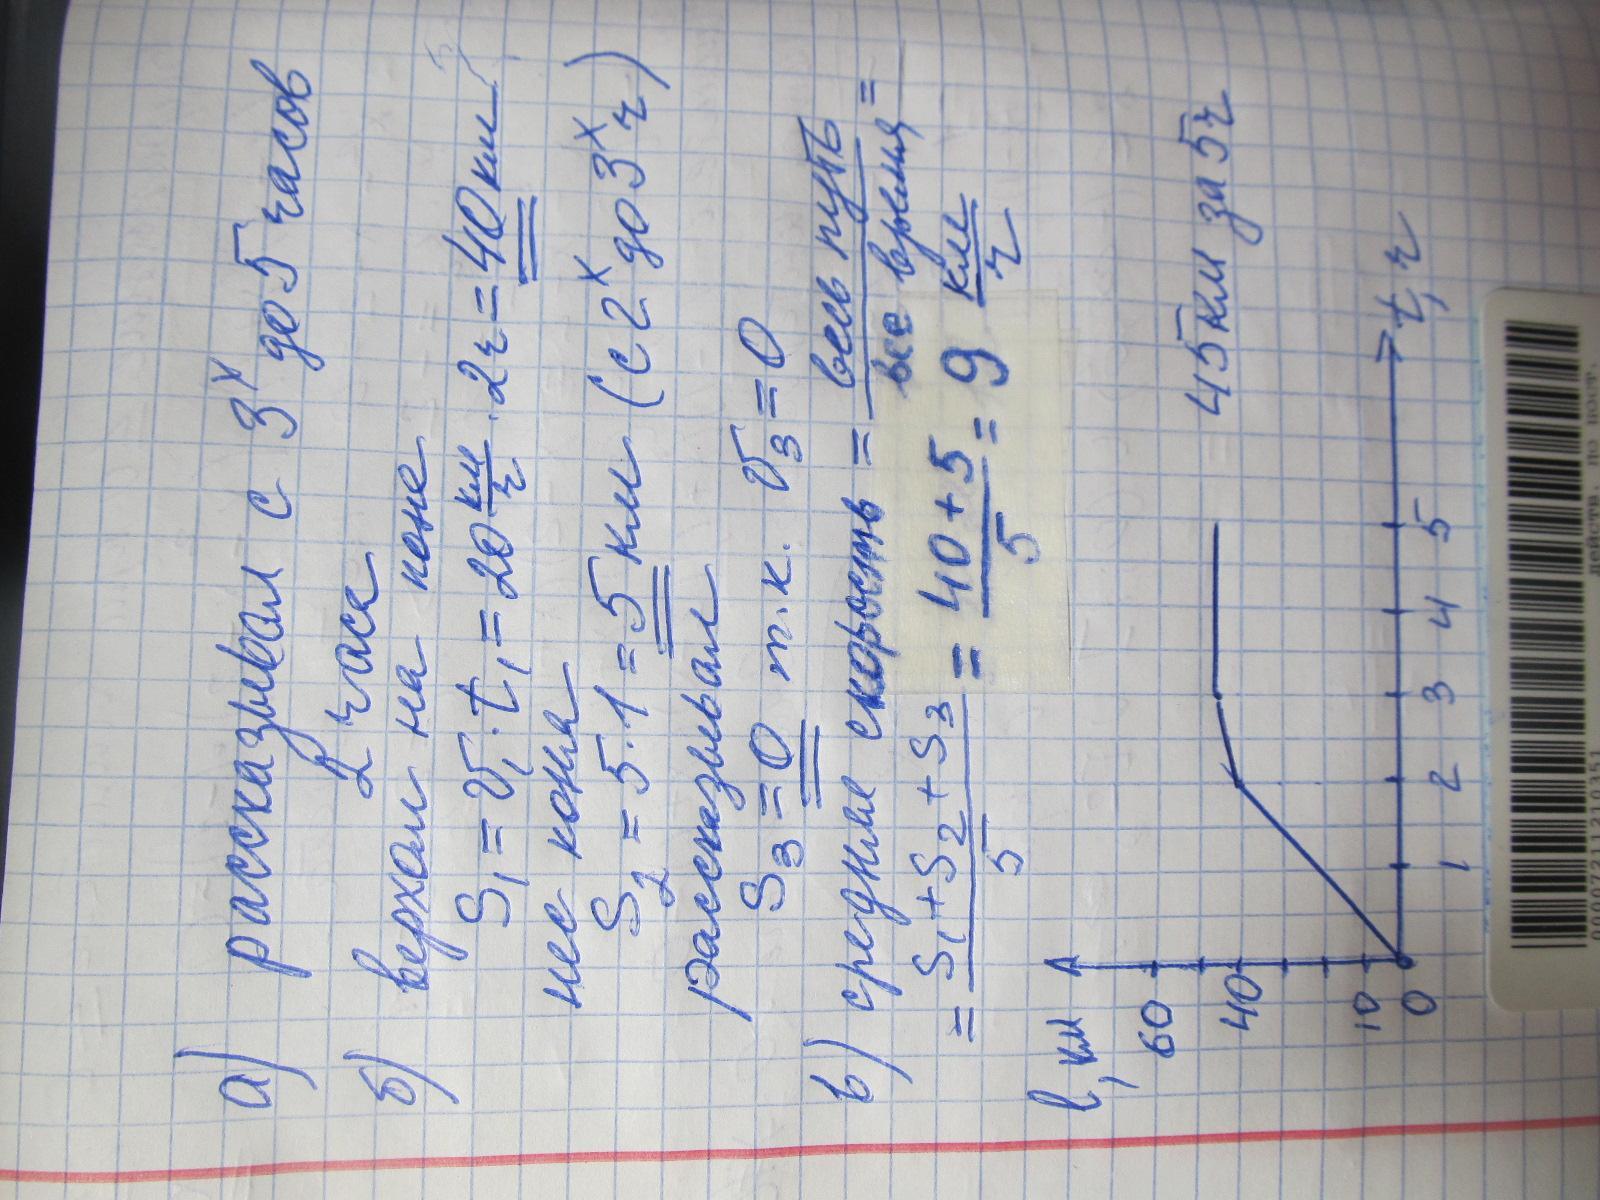 а) рассказывал с 3х до 5 часов
2 часа
б) верхом на коне
S₁ = v₁ · t₁ = 20 км/ч · 2ч = 40 км
нес коня
S₂ = 5 · 1 = 5 км (с 2х до 3х ч)
рассказывал
S₃ = 0 т.к. v₃ = 0
в) средняя скорость = весь путь / все время =
= S₁ + S₂ + S₃ / 5 = 40 + 5 / 5 = 9 км/ч
l, км
60
40
10
0
1 2 3 4 5 t, ч
45 км за 5ч
0000721121210351
действ. до посл.